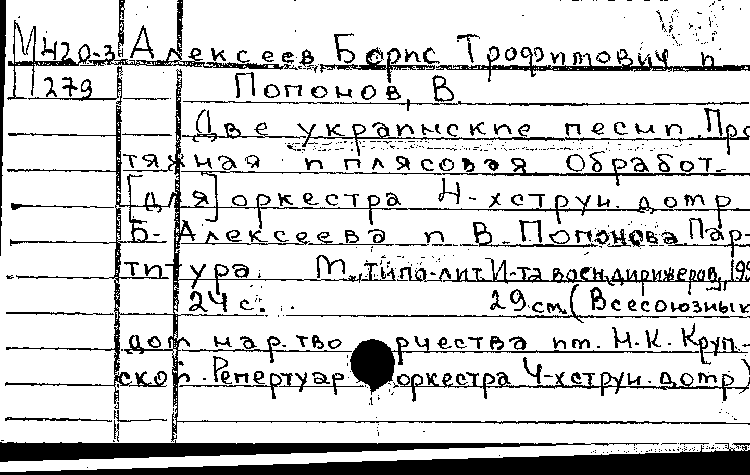 М420-3 Алексеев Борис Трофимович и
П279 Попонов, В.
Две украинские песни. Про
тяжная и плясовая Обработ-
[для] оркестра 4-хструн. домр
Б. Алексеева и В. Попонова. Пар-
титура. М., типо-лит. И-та воен. дирижеров, 19
24 с. 29 см (Всесоюзный
дом нар. творчества им. Н. К. Круп-
ской. Репертуар оркестра 4-хструн. домр)